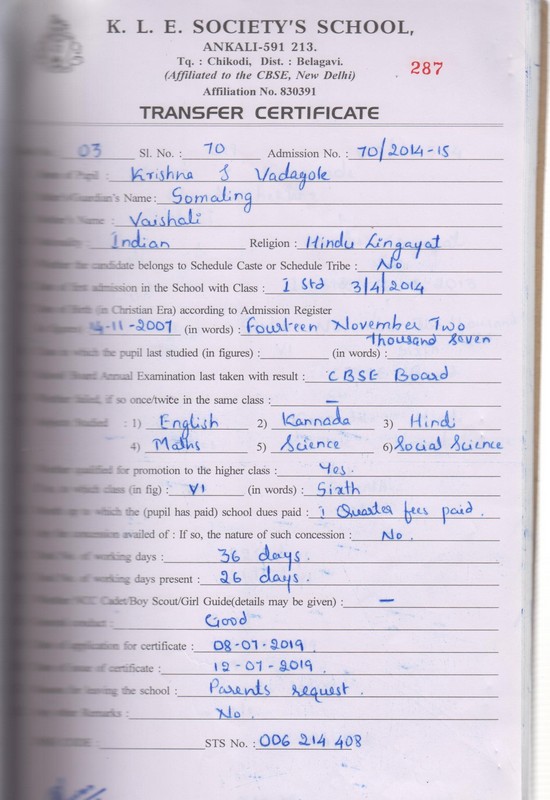 K. L. E. SOCIETY'S SCHOOL,
ANKALI-591 213.
Tq. : Chikodi, Dist. : Belagavi.
(Affiliated to the CBSE, New Delhi)
287
Affiliation No. 830391
TRANSFER CERTIFICATE
03 Sl. No. : 70 Admission No. : 70/2014-15
of Pupil : Krishna S Vadagole
Guardian's Name : Somaling
Name : Vaishali
Indian Religion : Hindu Lingayat
the candidate belongs to Schedule Caste or Schedule Tribe : No
of first admission in the School with Class : I Std 3/4/2014
of Birth (in Christian Era) according to Admission Register
14-11-2007 (in words) : Fourteen November Two
Thousand Seven
in which the pupil last studied (in figures) : (in words) :
Board Annual Examination last taken with result : CBSE Board
failed, if so once/twice in the same class : —
Studied : 1) English 2) Kannada 3) Hindi
4) Maths 5) Science 6) Social Science
qualified for promotion to the higher class : Yes.
which class (in fig) : VI (in words) : Sixth
up to which the (pupil has paid) school dues paid : I Quarter fees paid.
fee concession availed of : If so, the nature of such concession : No.
No. of working days : 36 days.
No. of working days present : 26 days.
NCC Cadet/Boy Scout/Girl Guide(details may be given) : —
conduct : Good
of application for certificate : 08-07-2019
of issue of certificate : 12-07-2019
for leaving the school : Parents request.
other Remarks : No.
STS No. : 006 214 408